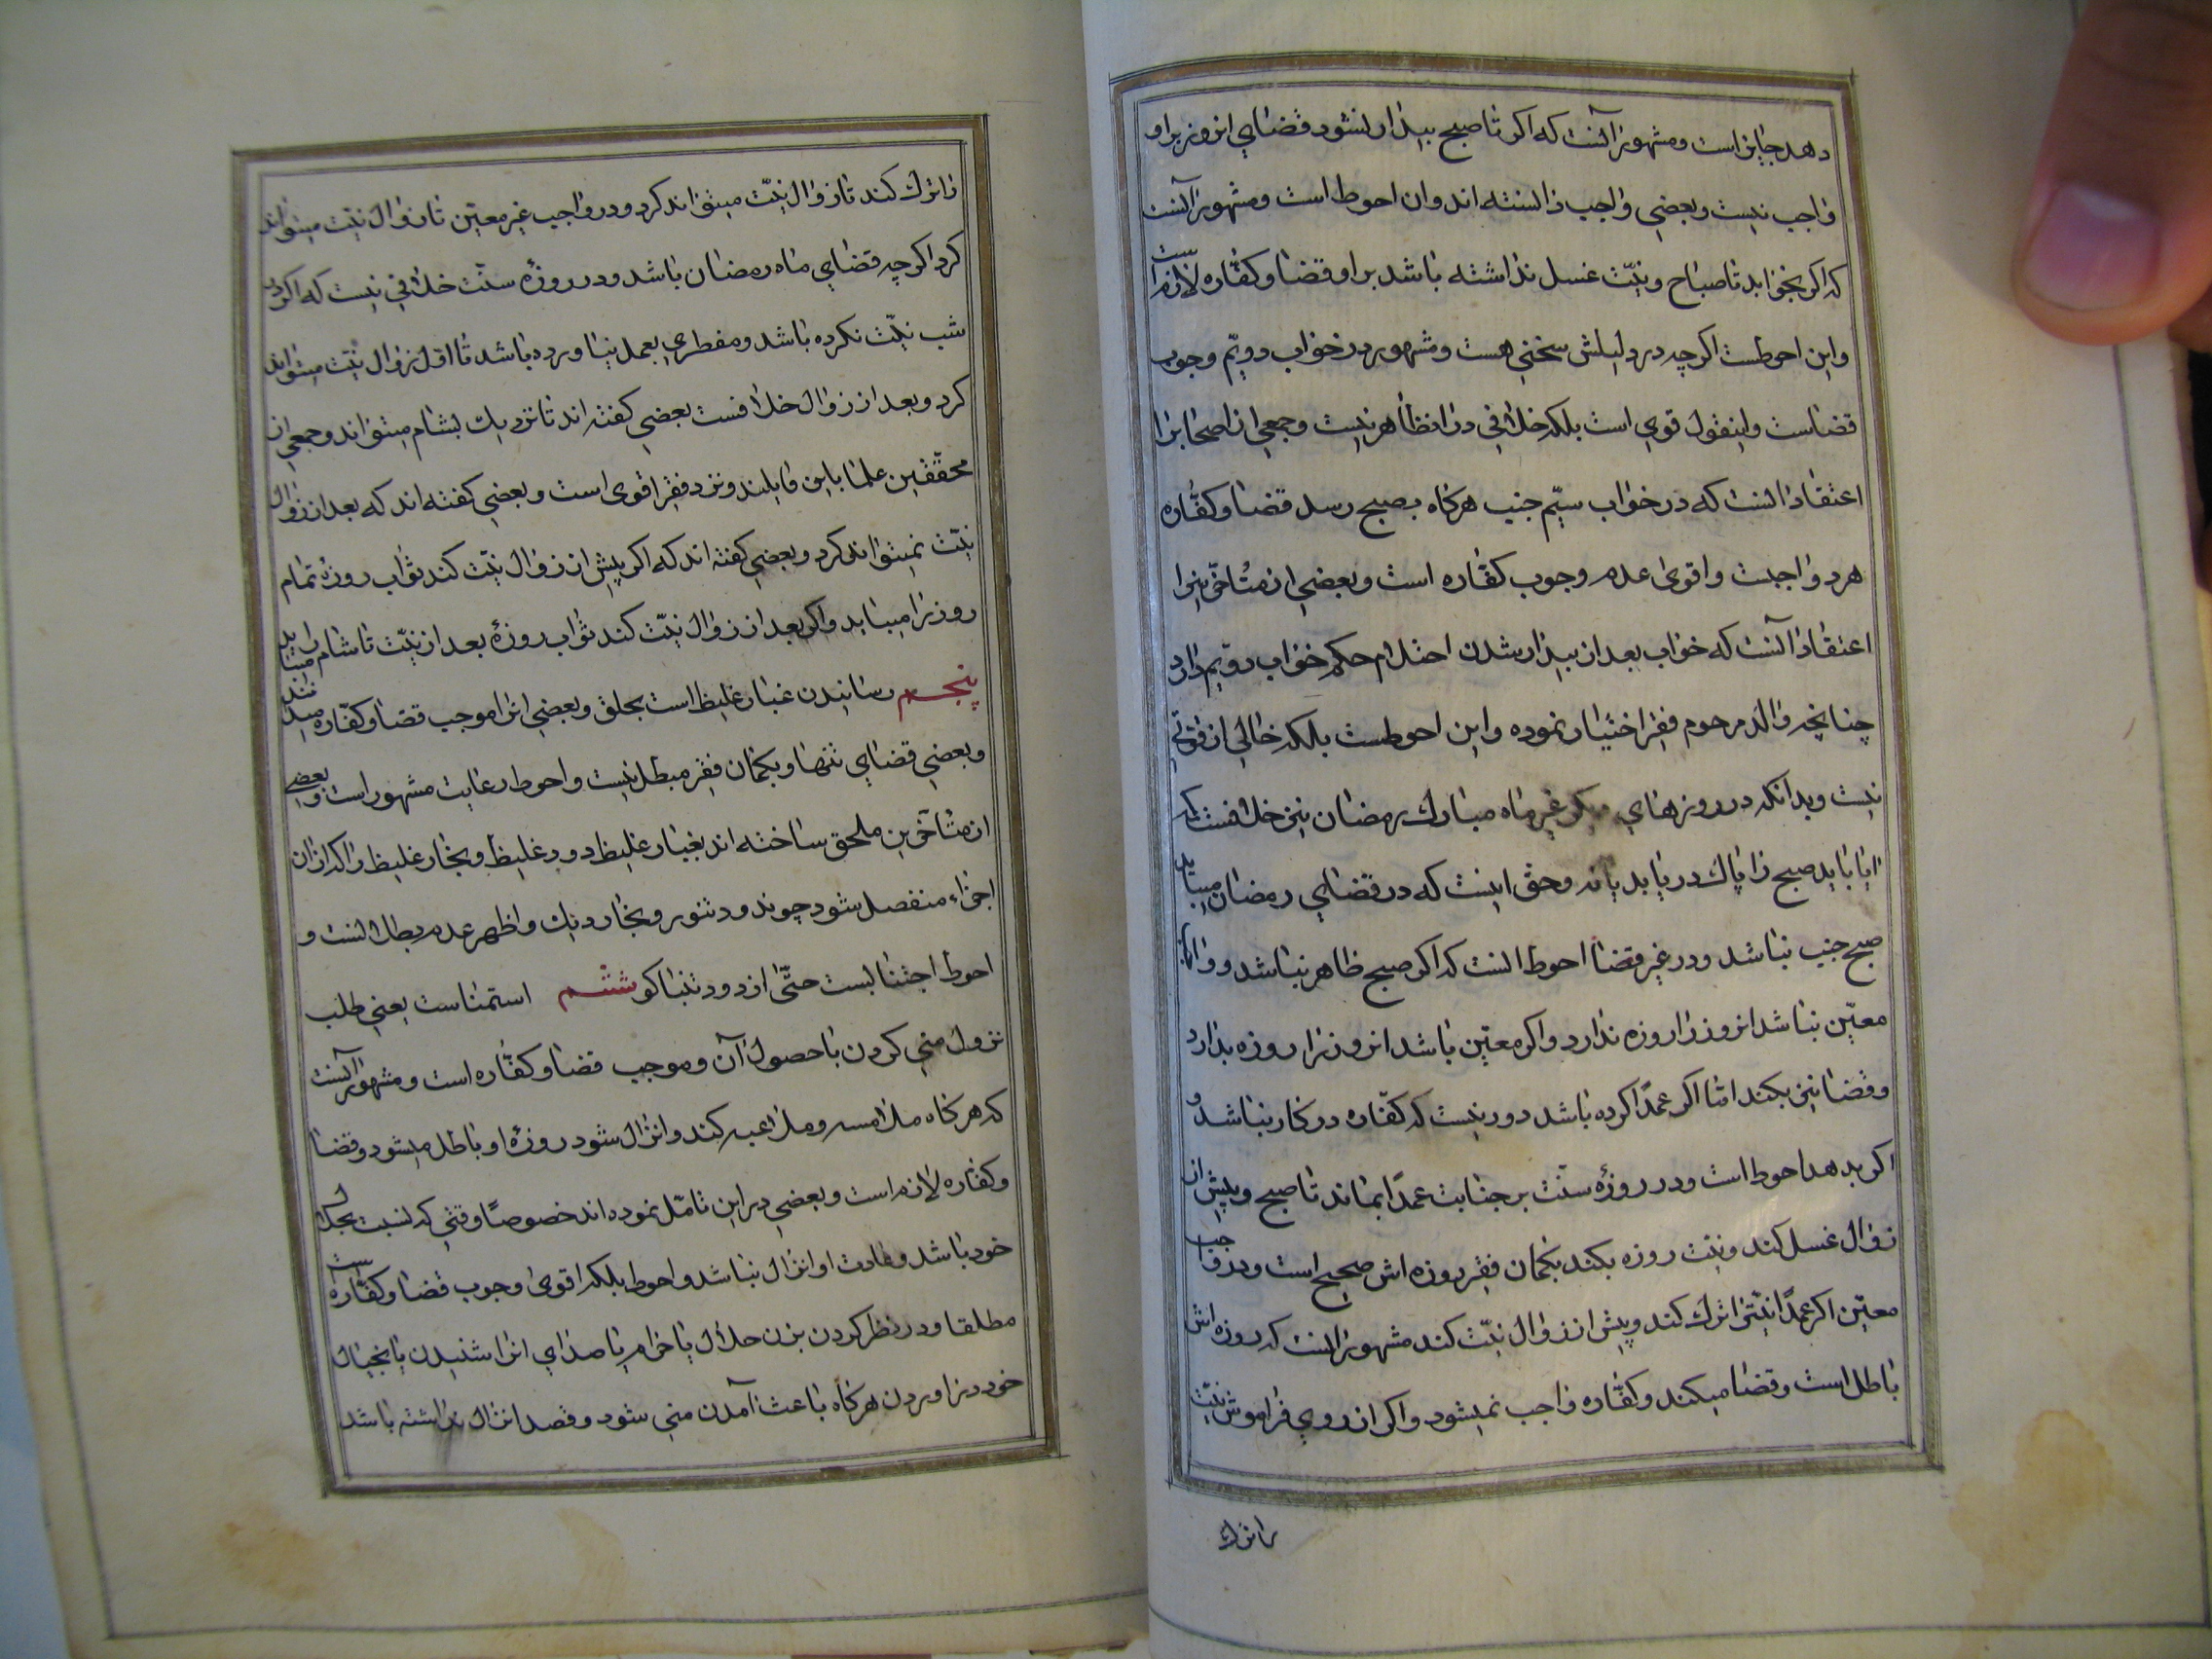 دهد جایز است و مشهور آنست که اگر تا صبح بیدار نشود قضای انروز بر او
واجب نیست و بعضی واجب دانسته اند و ان احوط است و مشهور آنست
که اگر بخوابد تا صباح و نیّت غسل نداشته باشد بر او قضا و کفّاره لازمست
و این احوطست اگر چه در دلیلش سخنی هست و مشهور در خواب دویّم وجوب
قضاست و اینقول قوی است بلکه خلافی در ان ظاهر نیست و جمعی از اصحابرا
اعتقاد انست که در خواب سیّم جنب هرگاه بصبح رسد قضا و کفّاره
هردو واجبست و اقوی عدم وجوب کفّاره است و بعضی از متاخّرینرا
اعتقاد آنست که خواب بعد از بیدار شدن احتلام حکم خواب دویّم دارد
چنانچه والد مرحوم فقیر اختیار نموده و این احوطست بلکه خالی از قوّتی
نیست و بدانکه در روزهای دیگر غیر ماه مبارک رمضان نیز خلافست که
ایا باید صبح را پاک دریابد یا نه و حق اینست که در قضای رمضان میباید
صبح جنب نباشد و در غیر قضا احوط انست که اگر صبح ظاهر نباشد و واجب
معیّن نباشد انروز را روزه ندارد و اگر معیّن باشد انروز را روزه بدارد
و قضا نیز بکند امّا اگر عمداً کرده باشد دور نیست که کفّاره در کار نباشد و
اگر بدهد احوط است و در روزهٔ سنّت بر جنابت عمداً بماند تا صبح و پیش از
زوال غسل کند و نیّت روزه بکند بگمان فقیر روزه اش صحیح است و در واجب
معیّن اگر عمداً نیّترا ترک کند و پیش از زوال نیّت کند مشهور انست که روزه اش
باطل است و قضا میکند و کفّاره واجب نمیشود و اگر از روی فراموشی نیّت
را ترک
را ترک کند تا زوال نیّت میتواند کرد و در واجب غیر معیّن تا زوال نیّت میتواند
کرد اگر چه قضای ماه رمضان باشد و در روزهٔ سنّت خلافی نیست که اگر در
شب نیّت نکرده باشد و مفطری بعمل نیاورده باشد تا اوّل زوال نیّت میتواند
کرد و بعد از زوال خلافست بعضی گفته اند تا نزدیک بشام میتواند و جمعی از
محقّقین علما باین قایلند و نزد فقیر اقوی است و بعضی گفته اند که بعد از زوال
نیّت نمیتواند کرد و بعضی گفته اند که اگر پیش از زوال نیّت کند ثواب روزهٔ تمام
روز را میابد و اگر بعد از زوال نیّت کند ثواب روزهٔ بعد از نیّت تا شام را میابد
پنجم رسانیدن غبار غلیظ است بحلق و بعضی انرا موجب قضا و کفّاره میدانند
و بعضی قضای تنها و بگمان فقیر مبطل نیست و احوط رعایت مشهور است و بعضی
از متاخّرین ملحق ساخته اند بغبار غلیظ دود غلیظ و بخار غلیظ را که از ان
اجزاء منفصل شود چون دود تنور و بخار دیک و اظهر عدم بطلانست و
احوط اجتنابست حتّی از دود تنباکو ششم استمناست یعنی طلب
نزول منی کردن با حصول آن و موجب قضا و کفّاره است و مشهور آنست
که هرگاه ملامسه و ملاعبه کند و انزال شود روزهٔ او باطل میشود و قضا
و کفّاره لازم است و بعضی در این تامّل نموده اند خصوصاً وقتی که نسبت بحلال
خود باشد و عادت او انزال نباشد و احوط بلکه اقوی وجوب قضا و کفّاره است
مطلقا و در نظر کردن بزن حلال یا حرام یا صدای انرا شنیدن یا بخیال
خود در اوردن هرگاه باعث آمدن منی شود و قصد انزال نداشته باشد